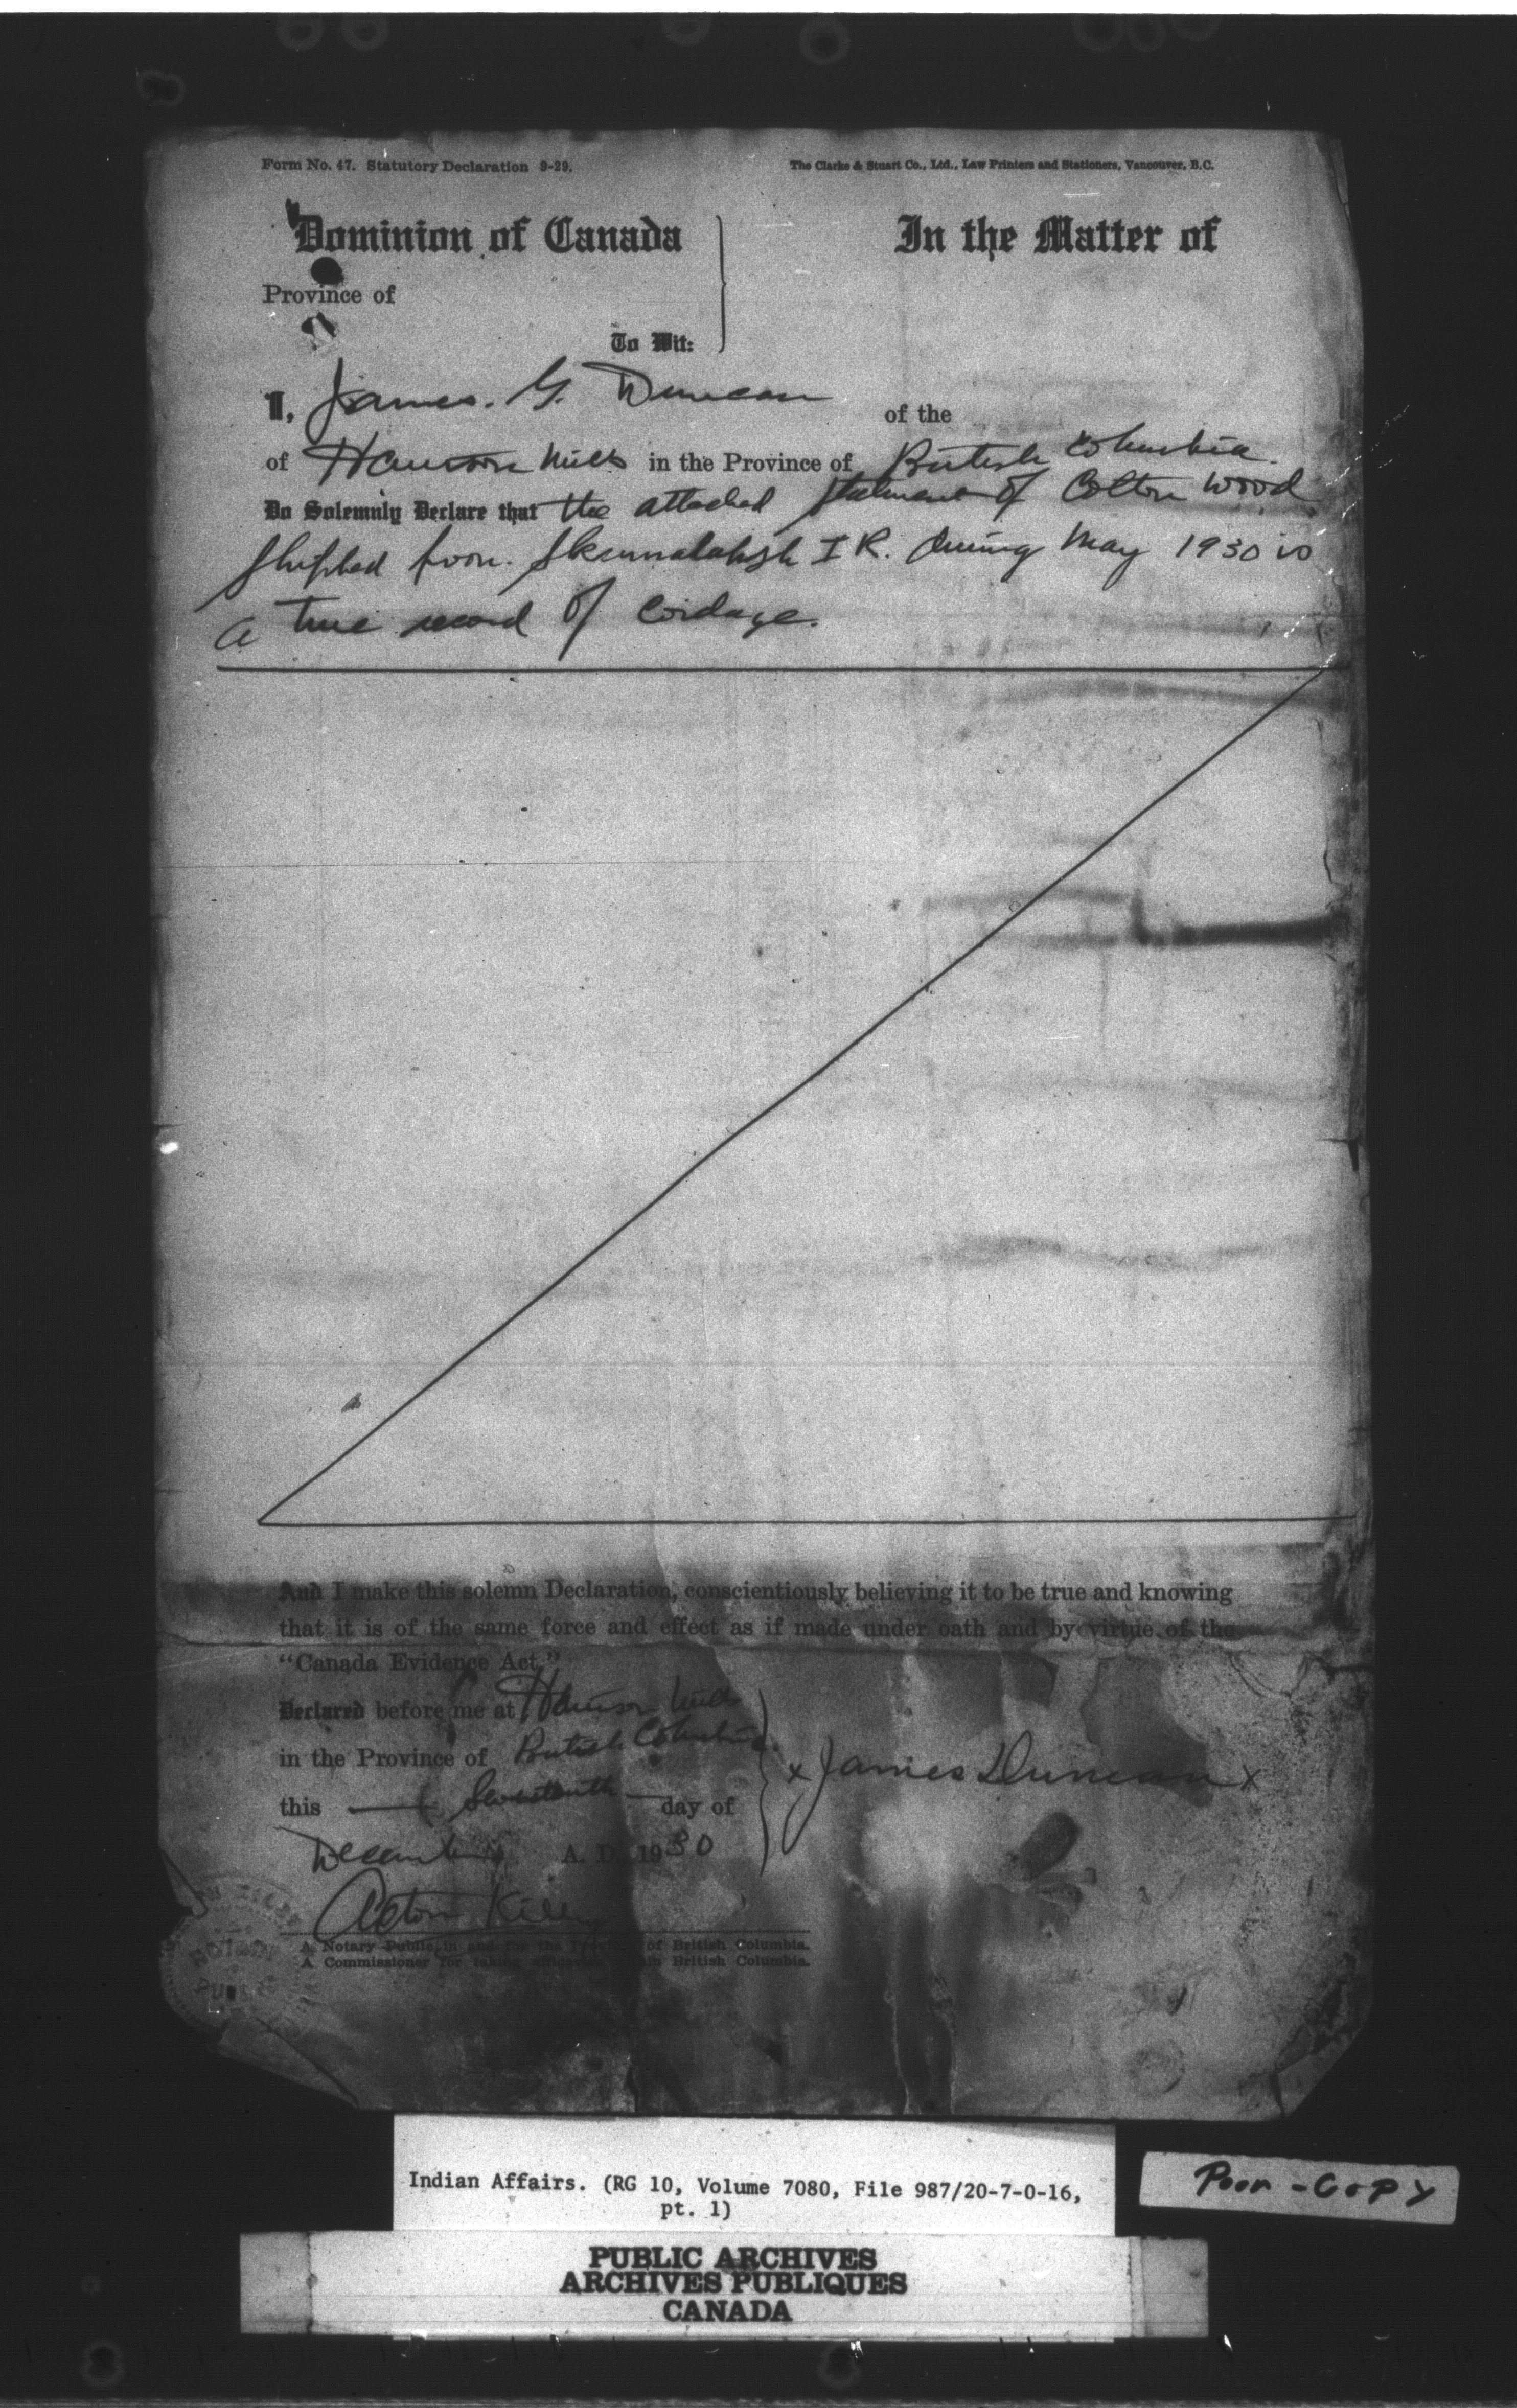 Form No. 47. Statutory Declaration 9-29.
The Clarke & Stuart Co., Ltd., Law Printers and Stationers, Vancouver, B.C.
Dominion of Canada
In the Matter of
Province of
To Wit:
I, James. G. Duncan of the
of Harrison Mills in the Province of British Columbia.
Do Solemnly Declare that the attached statement of Cotton Wood
shipped from I R. during May 1930 is
a true record of Cordage.
And I make this solemn Declaration, conscientiously believing it to be true and knowing
that it is of the same force and effect as if made under oath and by virtue of the
"Canada Evidence Act."
Declared before me at Harrison Mills
in the Province of British Columbia.
x James Duncan x
this Seventeenth day of
December A. D. 1930
Acton Kilby
A Notary Public in and for the Province of British Columbia.
A Commissioner for taking affidavits within British Columbia.
NOTARY
PUBLIC
Indian Affairs. (RG 10, Volume 7080, File 987/20-7-0-16,
pt. 1)
Poor - Copy
PUBLIC ARCHIVES
ARCHIVES PUBLIQUES
CANADA